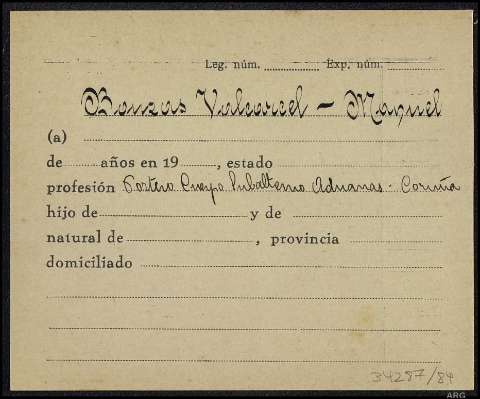 Leg. núm. Exp. núm.
Bouzas Valcarcel - Manuel
(a)
de años en 19 , estado
profesión Portero Cuerpo Subalterno Aduanas - Coruña
hijo de y de
natural de , provincia
domiciliado
34287/84
ARG